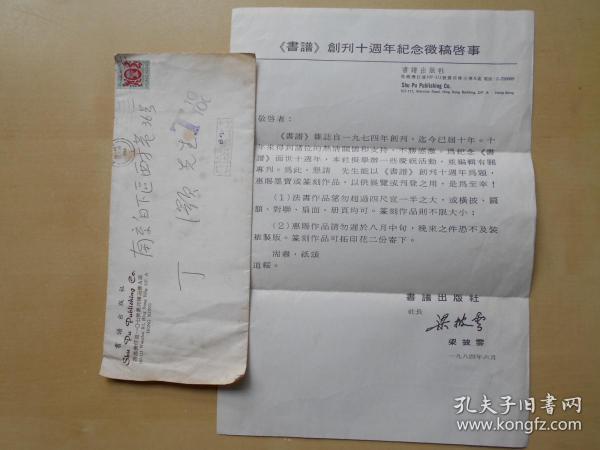 《書譜》創刊十週年紀念徵稿啓事
書譜出版社
Shu Pu Publishing Co.
敬啓者：
《書譜》雜誌自一九七四年創刊，迄今已屆十年。十
年來得到諸位的熱情關懷和支持，不勝感激。爲紀念《書
譜》面世十週年，本社擬舉辦一些慶祝活動，並編輯有關
專刊。爲此，懇請　先生能以《書譜》創刊十週年爲題，
惠賜墨寶或篆刻作品，以供展覽或刊登之用，是爲至幸！
(1)法書作品篇勿超過四尺宣一半之大，或橫披、匾
額、對聯、扇面、册頁均可。篆刻作品則不限大小；
(2)惠賜作品請勿遲於八月中旬，晚來之件恐不及裝
裱製版。篆刻作品可拓印花二份寄下。
耑肅，祇頌
道綏。
書譜出版社
社長
梁披雲
梁披雲
一九八四年六月
南京白下區四條巷
丁灝先生
書譜出版社
Shu Pu Publishing Co.
孔夫子旧书网
www.kongfz.com